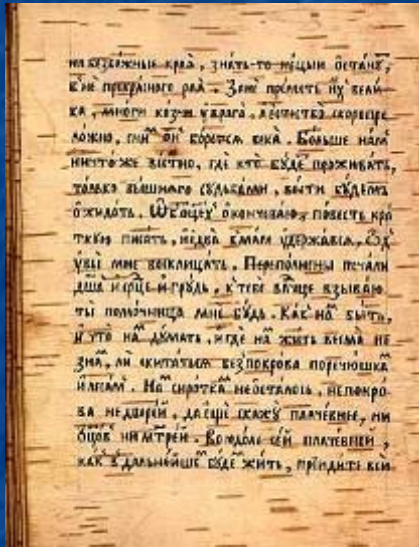 на безбожные края, знать-то нецыи останꙋ҃,
внѣ прекраснаго рая. Зане прелесть их вели-
ка, многи козни ꙋ врага, лестно скоро
ложно, сни҃ он борется века. Больше на҃м
ничтоже вѣстно, где кто бꙋде҃ проживать,
только вышняго сꙋдьбами, вѣсти бꙋдемъ
ожидать. Ѿ общеꙋ оканчеваю, повесть кра
ткꙋю писать, и едва с мали ꙋдержався,
ꙋвы мне восклицать. Переполнены печали
дш҃а и срⷣце и грꙋдь, к тебе взываю
ты помощница мне бꙋдь. Как на҃ быть,
и что на҃ дꙋмать, и где на҃ жить весма не
зна҃, ли скитаться без покрова по речꙋшка҃
и леса҃м. На҃ сиротка҃ не осталось, ни покро
ва не дверей, да еще скажꙋ плачевнее, ни
ѻц҃овъ ни мт҃рей. Во юдоле сей плачевней,
как в дальнейше҃ бꙋде҃ жить, приидите вси